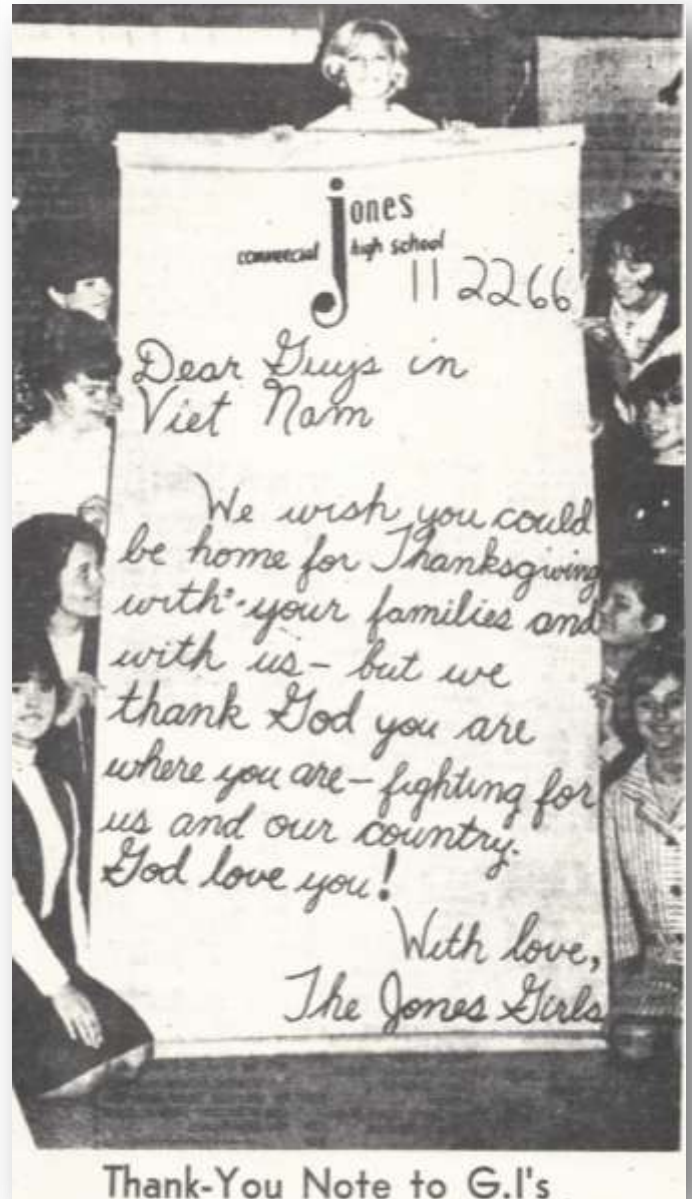 jones
commercial high school
11 22 66
Dear Guys in
Viet Nam
We wish you could
be home for Thanksgiving
with your families and
with us – but we
thank God you are
where you are – fighting for
us and our country.
God love you!
With love,
The Jones Girls
Thank-You Note to G.I's